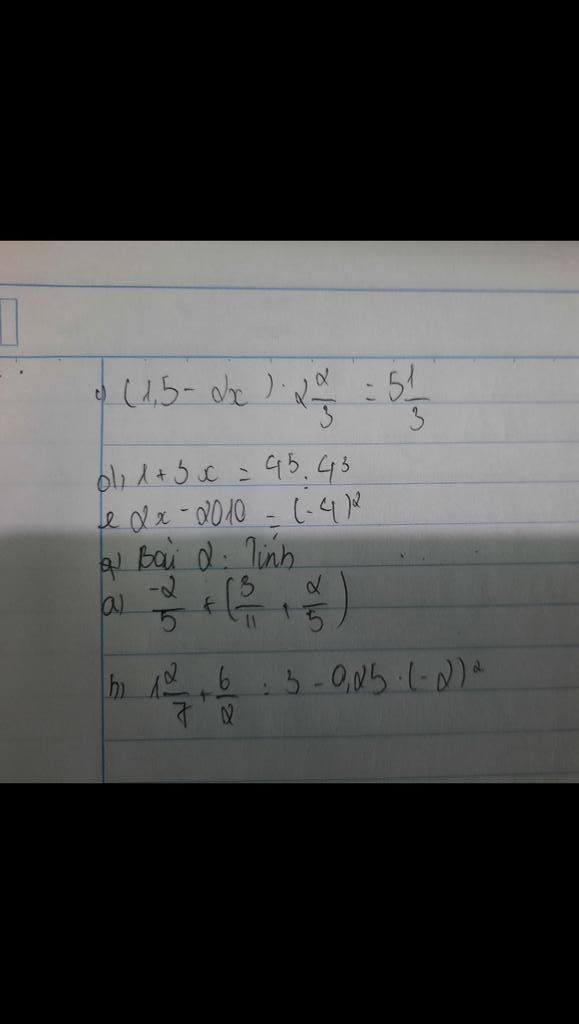 c) (1,5 - 2x) . 2 2/3 = 5 1/3
d), 1 + 3x = 4⁵ : 4³
e 2x - 2010 = (-4)²
Bài 2: Tính
a) -2/5 + (3/11 + 2/5)
b, 1 2/7 + 6/2 : 3 - 0,25 . (-2)²